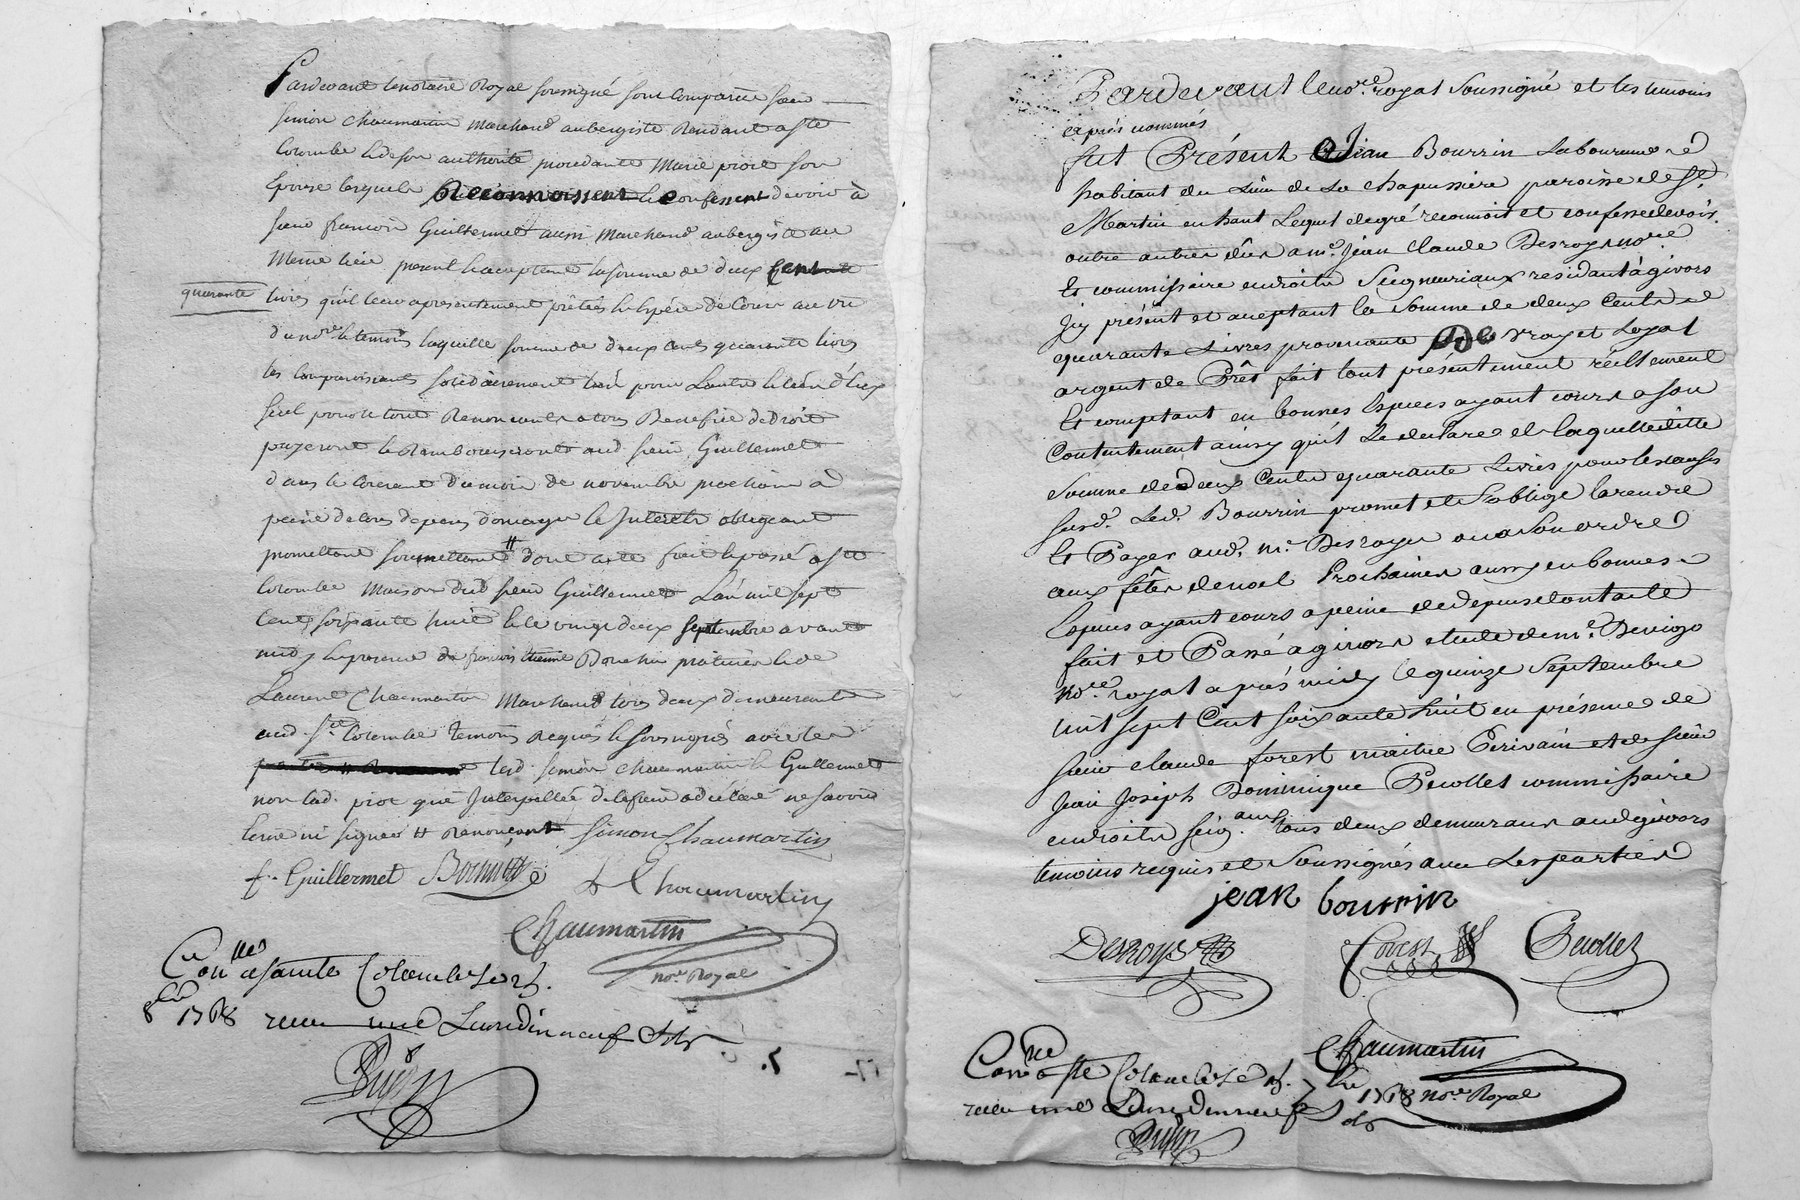 Pardevant le notaire Royal soussigné sont comparus sieur
simon chaumartin marchand aubergiste Rendant a ste
Colombe & de son authorité procedante Marie piot son
Epouse lesquels Reconnoissent & confessent devoir à
sieur françois Guillermet aussi marchand aubergiste au
meme lieu present & acceptant la somme de deux Cent
quarante
livres qu'il leur a presentement prêtés en espèce de Cour au vu
du nore & temoins laquelle somme de deux cents quarante livres
les comparoissants solidairement l'un pour L'autre & l'un d'Eux
seul pour le tout Renonceants a tous Benefice de Droit
payeront & Rembourseront aud sieur Guillermet
dans le Courant du mois de novembre prochain a
peine de tous depens domages & Interets obligeant
promettant soumettant # dont acte fait & passé a ste
Colombe Maison dud sieur Guillermet L'an mil sept
Cent soixante huit & le vingt deux septembre avant
midy En presence de françois Etienne & de
Laurent Chaumartin Marchand tous deux demeurant
aud. ste Colombe Temoins Requis & soussignés avec les
led. simon chaumartin & Guillermet
non lad. piot qui Interpellée de le faire a déclaré ne savoir
Ecrire ni signer # Renonceant simon Chaumartin
f. Guillermet
L Chaumartin
Chaumartin
nore Royal
Conlle a sainte Colombe Le
8bre 1768 receu une Livre dix neuf sols
Pardevant le nore royal Soussigné et les temoins
cy après nommés
fut Présent Jean Bourrin Laboureur
habitant du Lieu de La chapussière paroisse de St.
Martin en haut Lequel de gré reconnoit et confesse devoir
outre autres dûs a me. Jean Claude Desroys nore
& commissaire en droits Seigneuriaux residant à givors
Icy présent et acceptant la Somme de deux Cents
quarante Livres provenante De vray et Loyal
argent de Prêt fait tout présentement réellement
& comptant en bonnes Especes ayant cours a son
Contentement ainsy qu'il Le declare et laquelle ditte
somme de deux Cents quarante Livres pour les causes
susd. Led. Bourrin promet et s'oblige la rendre
& Payer aud. me. Desroys ou a son ordre
aux fêtes de noel Prochaines aussy en bonnes
Especes ayant cours a peine de depens dont acte
fait et Passé à givors etude de me.
nore royal après midy le quinze Septembre
mil sept Cent soixante huit en présence de
sieur claude forest maitre Ecrivain et de sieur
Jean Joseph Dominique Pecollet commissaire
en droits seigaux tous deux demeurans aud givors
temoins requis et Soussignés avec Les parties
jean bourrin
Desroys
forest
Pecollet
Chaumartin
nore Royal
Conlle a ste Colombe Le
7bre 1768
receu une Livre dix neuf sols